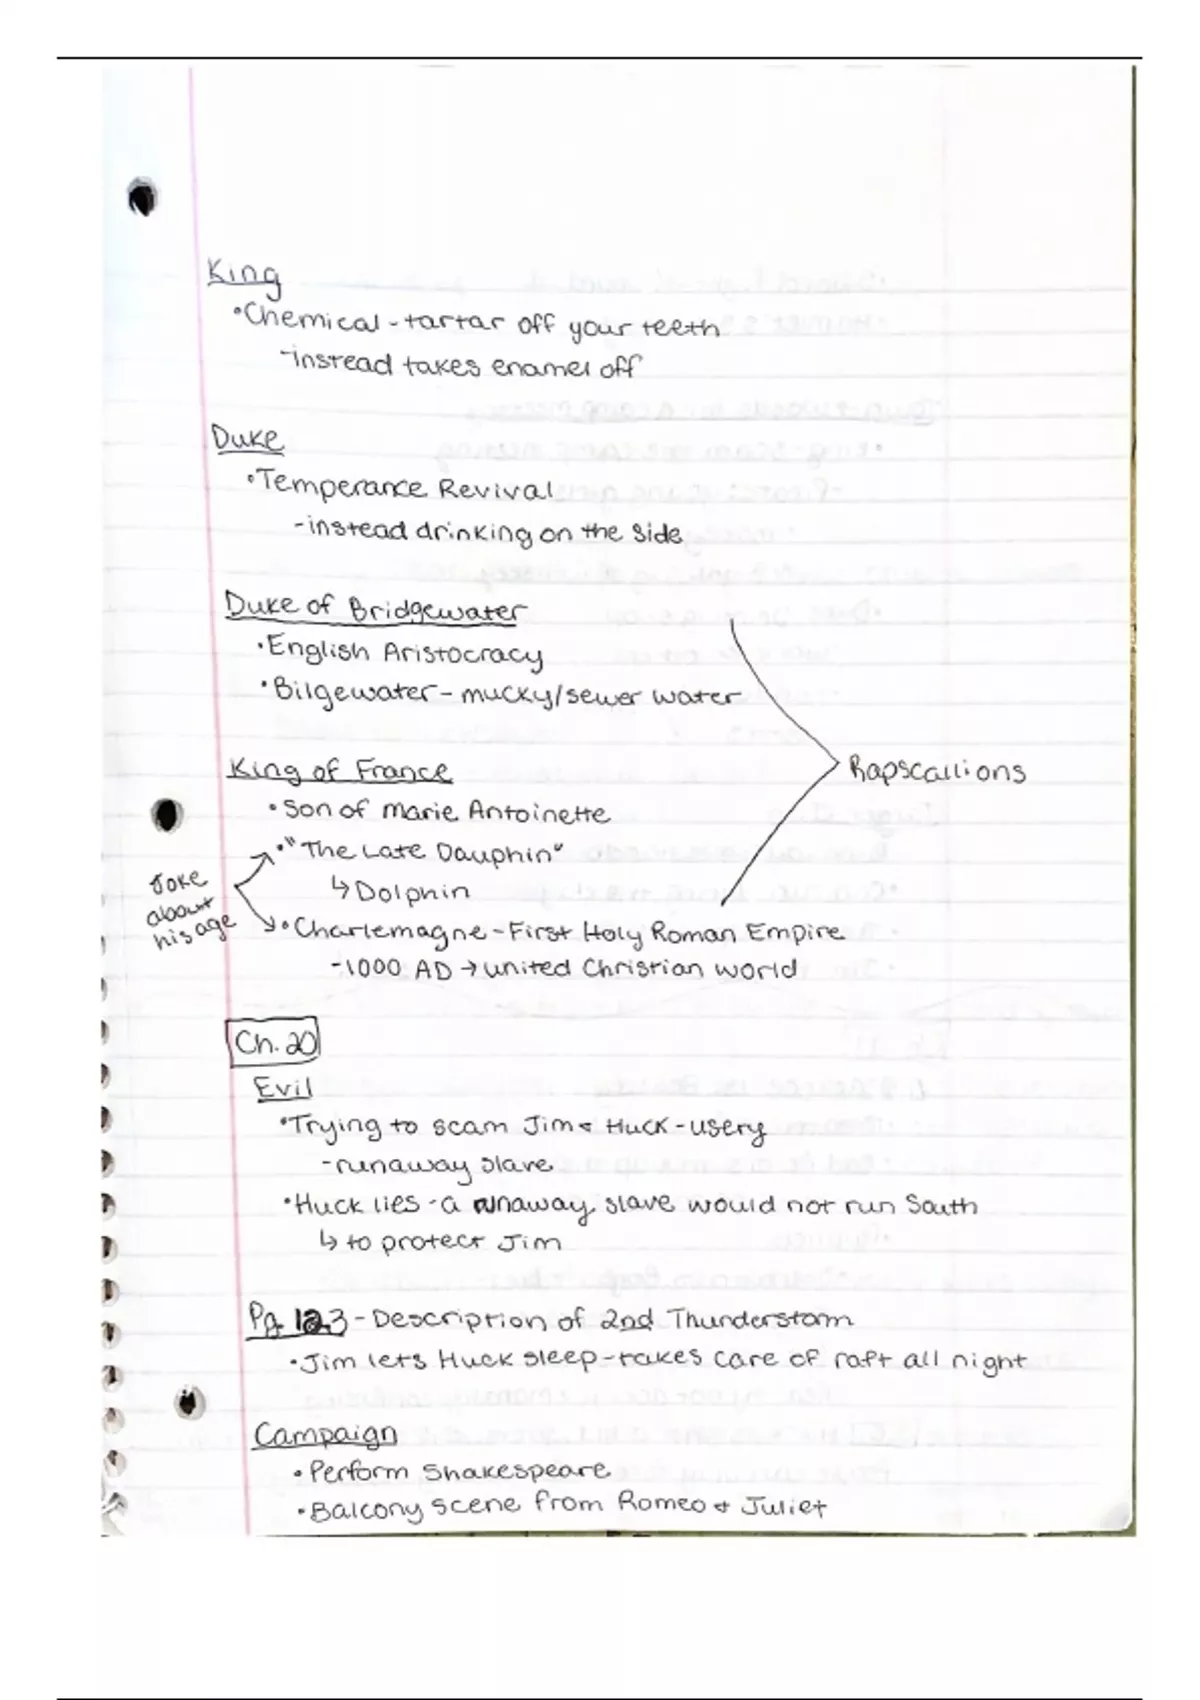 King
•Chemical - tartar off your teeth
-instead takes enamel off
Duke
•Temperance Revival
-instead drinking on the side
Duke of Bridgewater
•English Aristocracy
•Bilgewater - mucky/sewer water
King of France
•Son of Marie Antoinette
•"The Late Dauphin"
↳Dolphin
•Charlemagne - First Holy Roman Empire
-1000 AD → united Christian world
Joke
about
his age
Rapscallions
Ch. 20
Evil
•Trying to scam Jim & Huck - usery
-runaway slave
•Huck lies - a runaway slave would not run South
↳ to protect Jim
Pg. 123 - Description of 2nd Thunderstorm
•Jim lets Huck sleep - takes care of raft all night
Campaign
•Perform Shakespeare
•Balcony scene from Romeo & Juliet